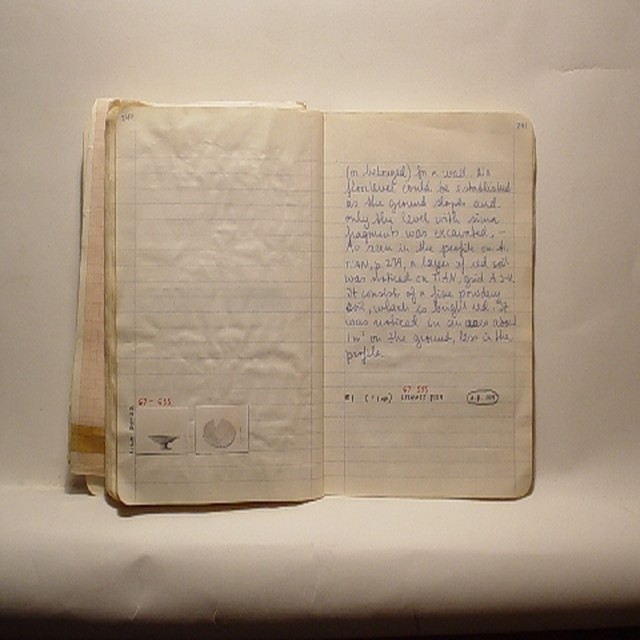 240
67-555
241
(or belonged) to a wall. No
floorlevel could be established
as the ground slopes and
only the level with some
fragments was excavated. -
As seen in the profile on A.
TIAN, p. 239, a layer of red soil
was noticed on TIAN, grid
It consist of a fine powdery
soil, which is bright red. It
was noticed in an area about
1m² on the ground, less in the
profile.
67-555
#1